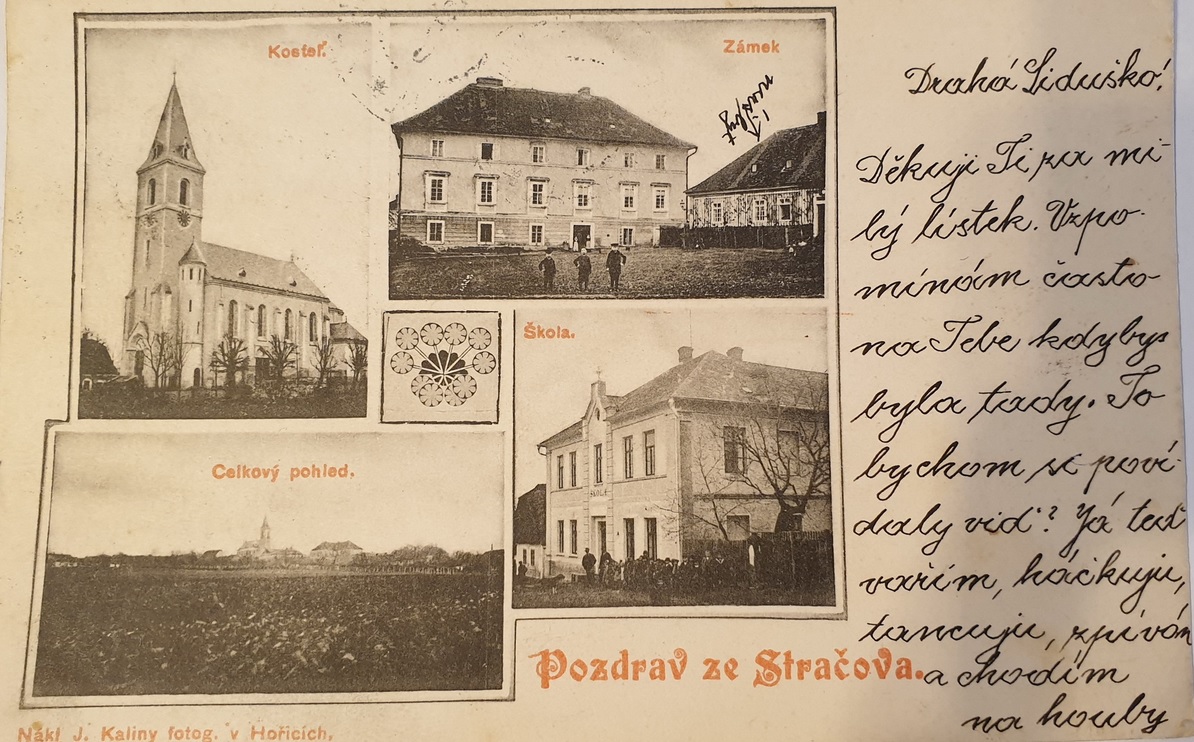 Kostel.
Zámek
náš byt
Škola.
ŠKOLA
Celkový pohled.
Pozdrav ze Stračova.
Nákl J. Kaliny fotog. v Hořicích,
Drahá Liduško!
Děkuji Ti za mi-
lý lístek. Vzpo-
mínám často
na Tebe kdybys
byla tady. To
bychom se poví-
daly viď? Já teď
vařím, háčkuju,
tancuju, zpívám
a chodím
na houby